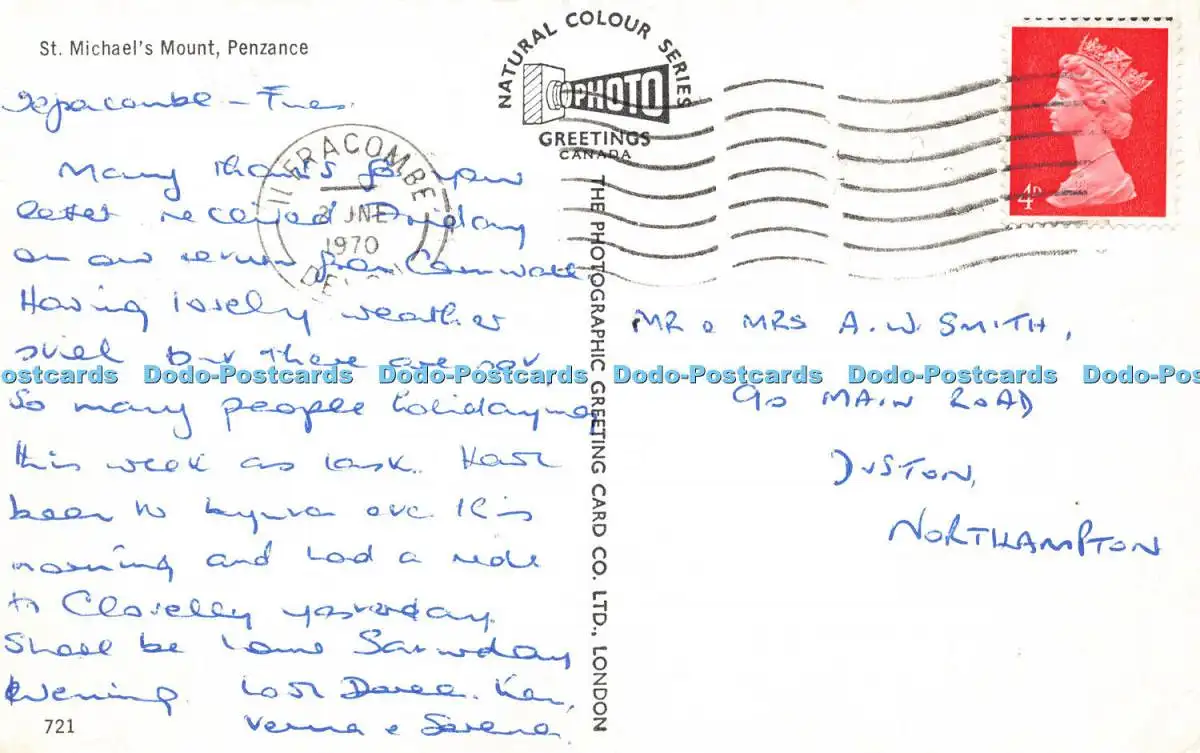 St. Michael's Mount, Penzance
NATURAL COLOUR SERIES
PHOTO
GREETINGS
CANADA
ILFRACOMBE
2 JNE
1970
4D
Ilfracombe – Tues.
Many thanks for your
letter received Friday
on our return from Cornwall.
Having lovely weather
still but there are not
so many people holidaying
this week as last. Have
been to Lynton etc. this
morning and had a ride
to Clovelly yesterday.
Shall be home Saturday
evening. Love Ken,
Verna & Serena
721
THE PHOTOGRAPHIC GREETING CARD CO. LTD., LONDON
MR & MRS A.W. SMITH,
90 MAIN ROAD
DUSTON,
NORTHAMPTON
ostcards Dodo-Postcards Dodo-Postcards Dodo-Postcards Dodo-Postcards Dodo-P